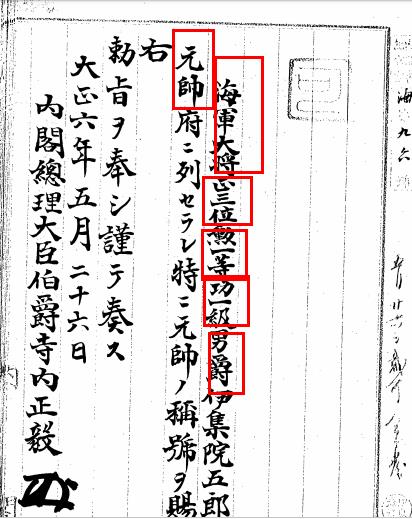 海九六
海軍大将正三位勲一等功一級男爵伊集院五郎
元帥府ニ列セラレ特ニ元帥ノ稱號ヲ賜
右
勅旨ヲ奉シ謹テ奏ス
大正六年五月二十六日
内閣總理大臣伯爵寺内正毅